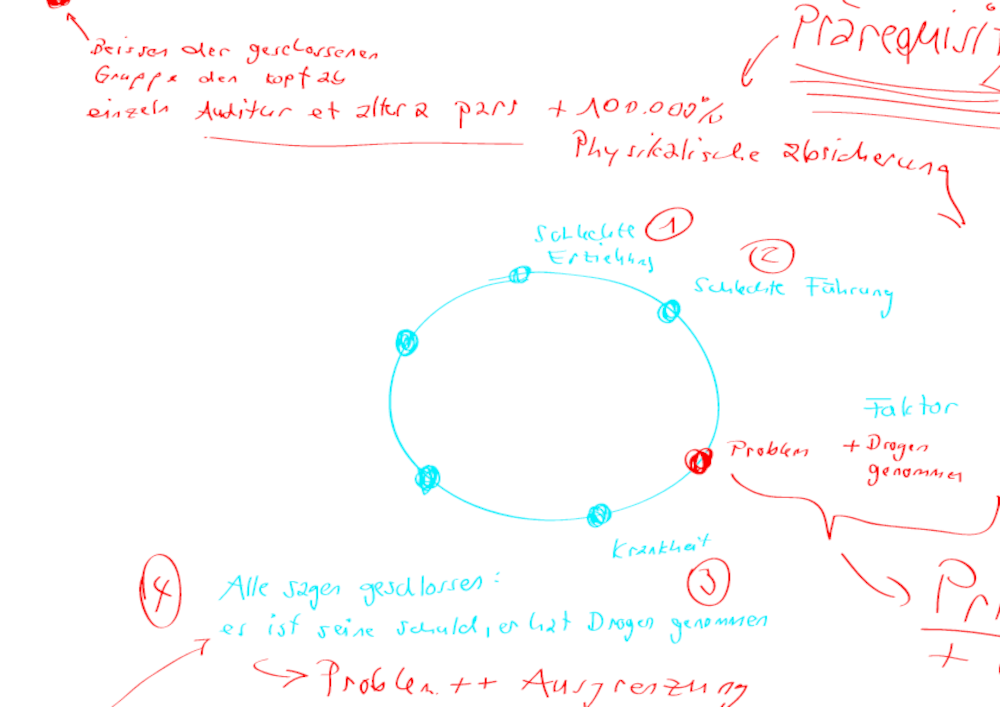 Beissen der geschlossenen
Gruppe den Kopf ab
einzeln Auditur et altera pars + 100.000%
Prärequisit
Physikalische absicherung
Schlechte ①
Erziehung
②
Schlechte Führung
Faktor
Problem + Drogen
genommen
Krankheit
③
④ Alle sagen geschlossen:
es ist seine schuld, er hat Drogen genommen
Problem ++ Ausgrenzung
Pr
+